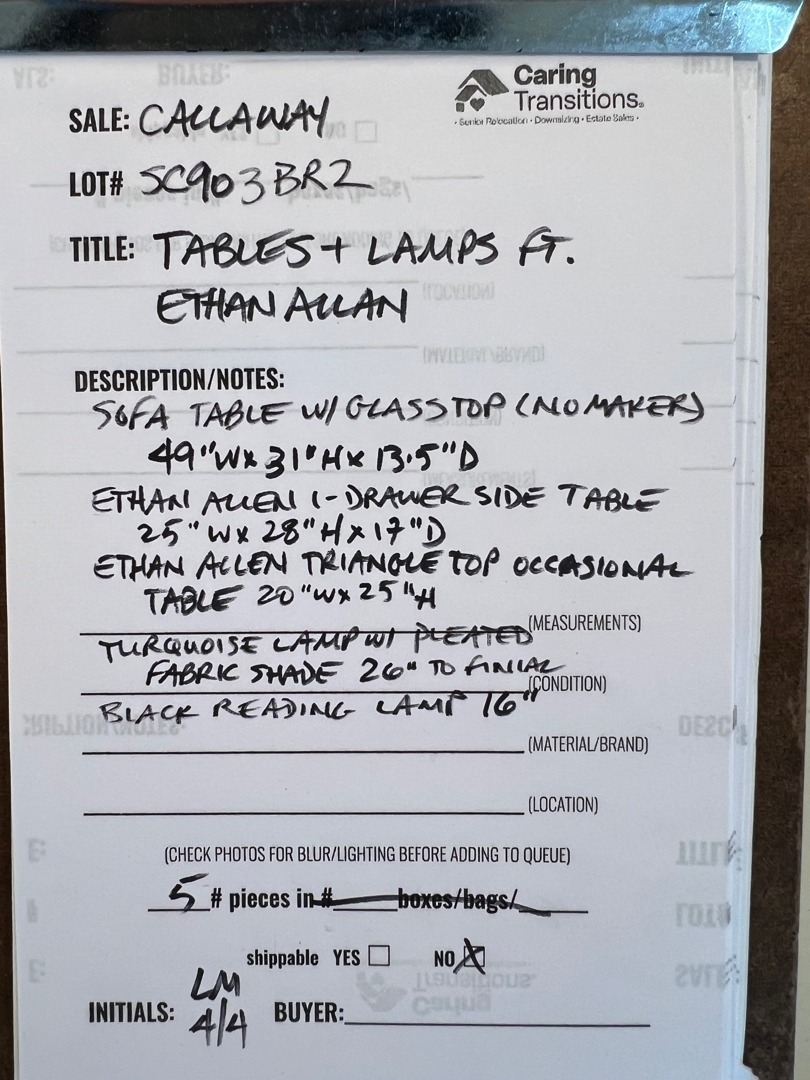 Caring
Transitions®
• Senior Relocation • Downsizing • Estate Sales •
SALE: CALLAWAY
LOT# SC903BR2
TITLE: TABLES + LAMPS FT.
ETHAN ALLAN
DESCRIPTION/NOTES:
SOFA TABLE W/ GLASS TOP (NO MAKER)
49"W x 31"H x 13.5"D
ETHAN ALLEN 1-DRAWER SIDE TABLE
25"W x 28"H x 17"D
ETHAN ALLEN TRIANGLE TOP OCCASIONAL
TABLE 20"W x 25"H
(MEASUREMENTS)
TURQUOISE LAMP W/ PLEATED
FABRIC SHADE 26" TO FINIAL
(CONDITION)
BLACK READING LAMP 16"
(MATERIAL/BRAND)
(LOCATION)
(CHECK PHOTOS FOR BLUR/LIGHTING BEFORE ADDING TO QUEUE)
5 # pieces in # boxes/bags/
shippable YES NO
INITIALS: LM 4/4 BUYER: